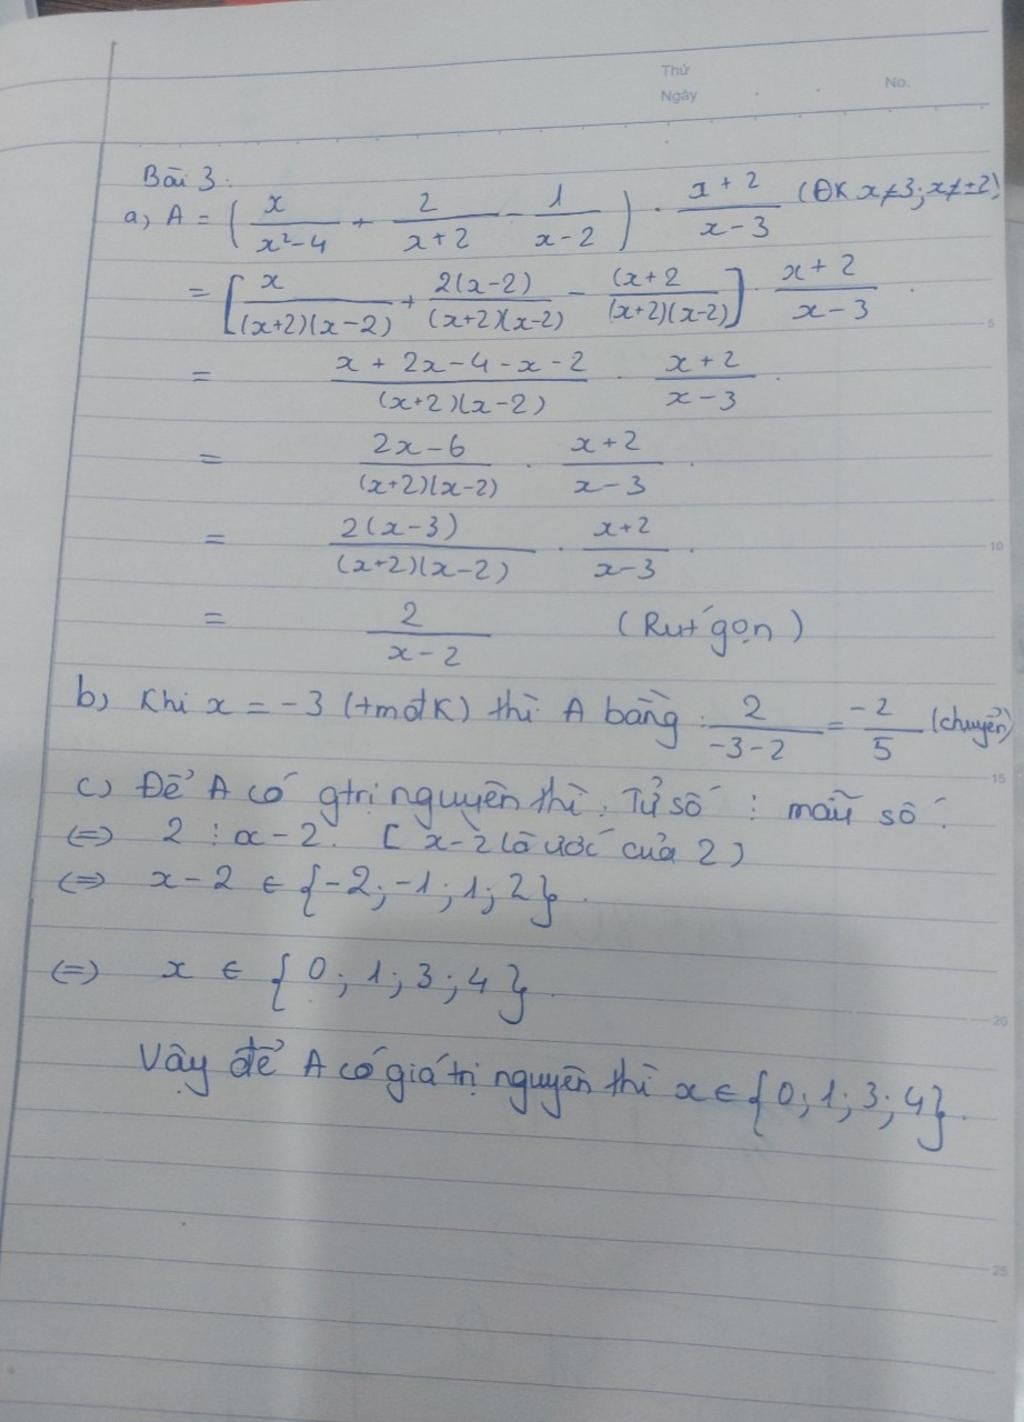 Thứ
Ngày No.
Bài 3:
a, A = ( x/(x²-4) + 2/(x+2) - 1/(x-2) ) · (x+2)/(x-3) (ĐK x≠3; x≠±2)
= [ x/((x+2)(x-2)) + 2(x-2)/((x+2)(x-2)) - (x+2/((x+2)(x-2)) ] · (x+2)/(x-3)
= (x+2x-4-x-2)/((x+2)(x-2)) · (x+2)/(x-3)
= (2x-6)/((x+2)(x-2)) · (x+2)/(x-3)
5
= 2(x-3)/((x+2)(x-2)) · (x+2)/(x-3)
10
= 2/(x-2) (Rút gọn)
b, Khi x = -3 (tmđK) thì A bằng: 2/(-3-2) = -2/5 (chuyển)
15
c) Để A có gtrị nguyên thì. Tử số ⋮ mẫu số.
(=) 2 ⋮ x-2. [x-2 là ước của 2)
(=) x-2 ∈ {-2; -1; 1; 2}.
(=) x ∈ {0; 1; 3; 4}.
20
Vậy để A có giá trị nguyên thì x ∈ {0; 1; 3; 4}.
25